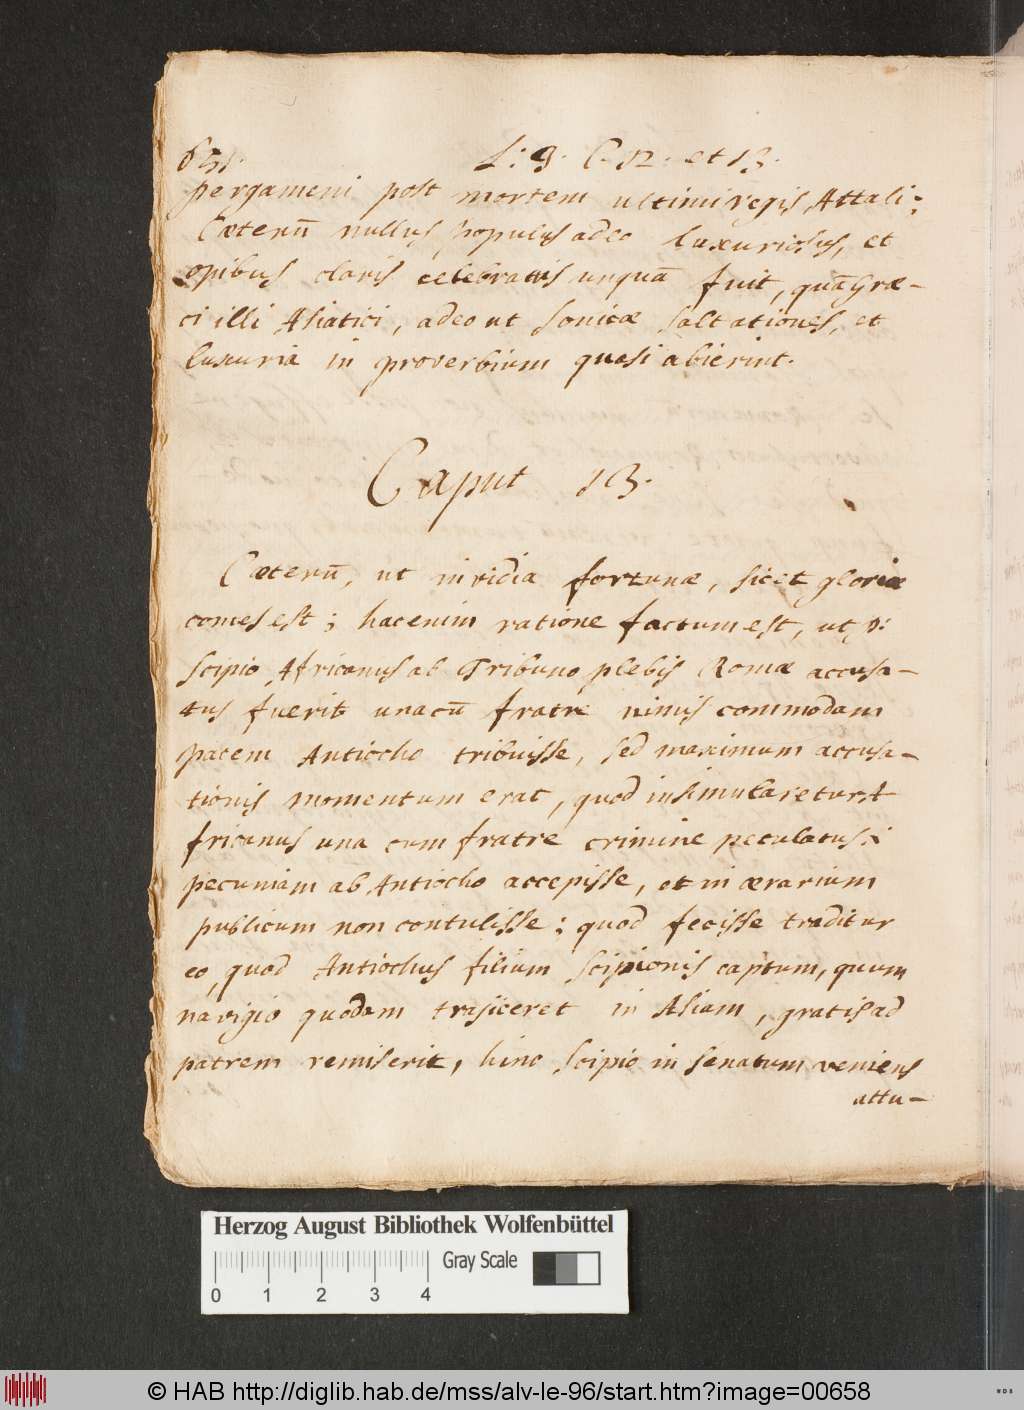 651. L: 9. C. 12. et 13.
pergameni post mortem ultimi regis Attali;
Cæterū nullus populus adeo luxuriosus, et
opibus claris celebratus unquā fuit, quā Græ-
ci illi Asiatici, adeo ut Jonicæ saltationes, et
luxuria in proverbium quasi abierint.
Caput 13.
Cæterū, ut invidia fortunæ, sic et gloriæ
comes est; hac enim ratione factum est, ut, P:
Scipio Africanus ab Tribuno plebis Romæ accusa-
tus fuerit una cū fratre nimis commodam
pacem Antiocho tribuisse, sed maximum accusa-
tionis momentum erat, quod insimularetur A
fricanus una cum fratre crimine peculatus;
pecuniam ab Antiocho accepisse, et in ærarium
publicum non contulisse; quod fecisse traditur
eo, quod Antiochus filium Scipionis captum, quum
navigio quodam trajiceret in Asiam, gratis ad
patrem remiserit, hinc Scipio in senatum veniens
attu-
Herzog August Bibliothek Wolfenbüttel
Gray Scale
0 1 2 3 4
© HAB http://diglib.hab.de/mss/alv-le-96/start.htm?image=00658